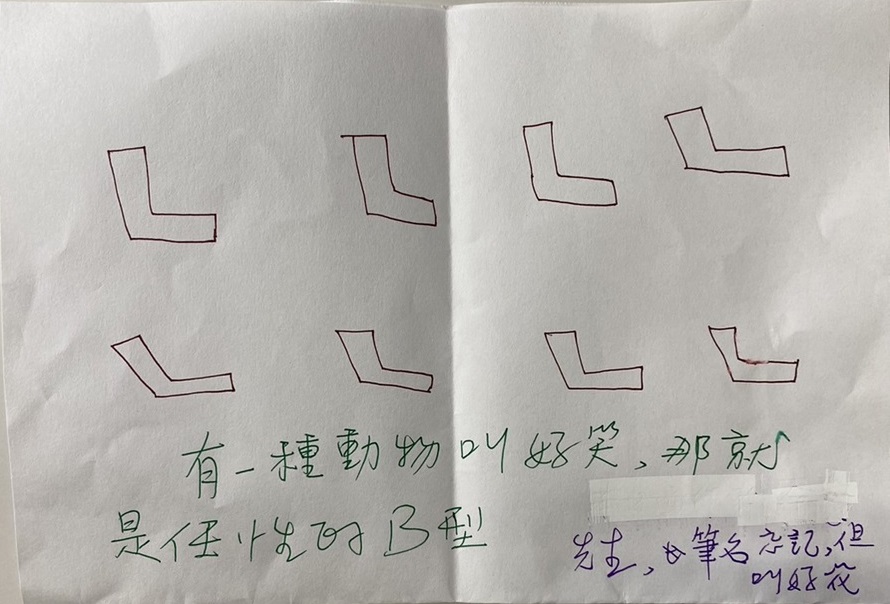 有一種動物叫好笑、那就
是任性的B型
先生,筆名忘記,但
叫好花